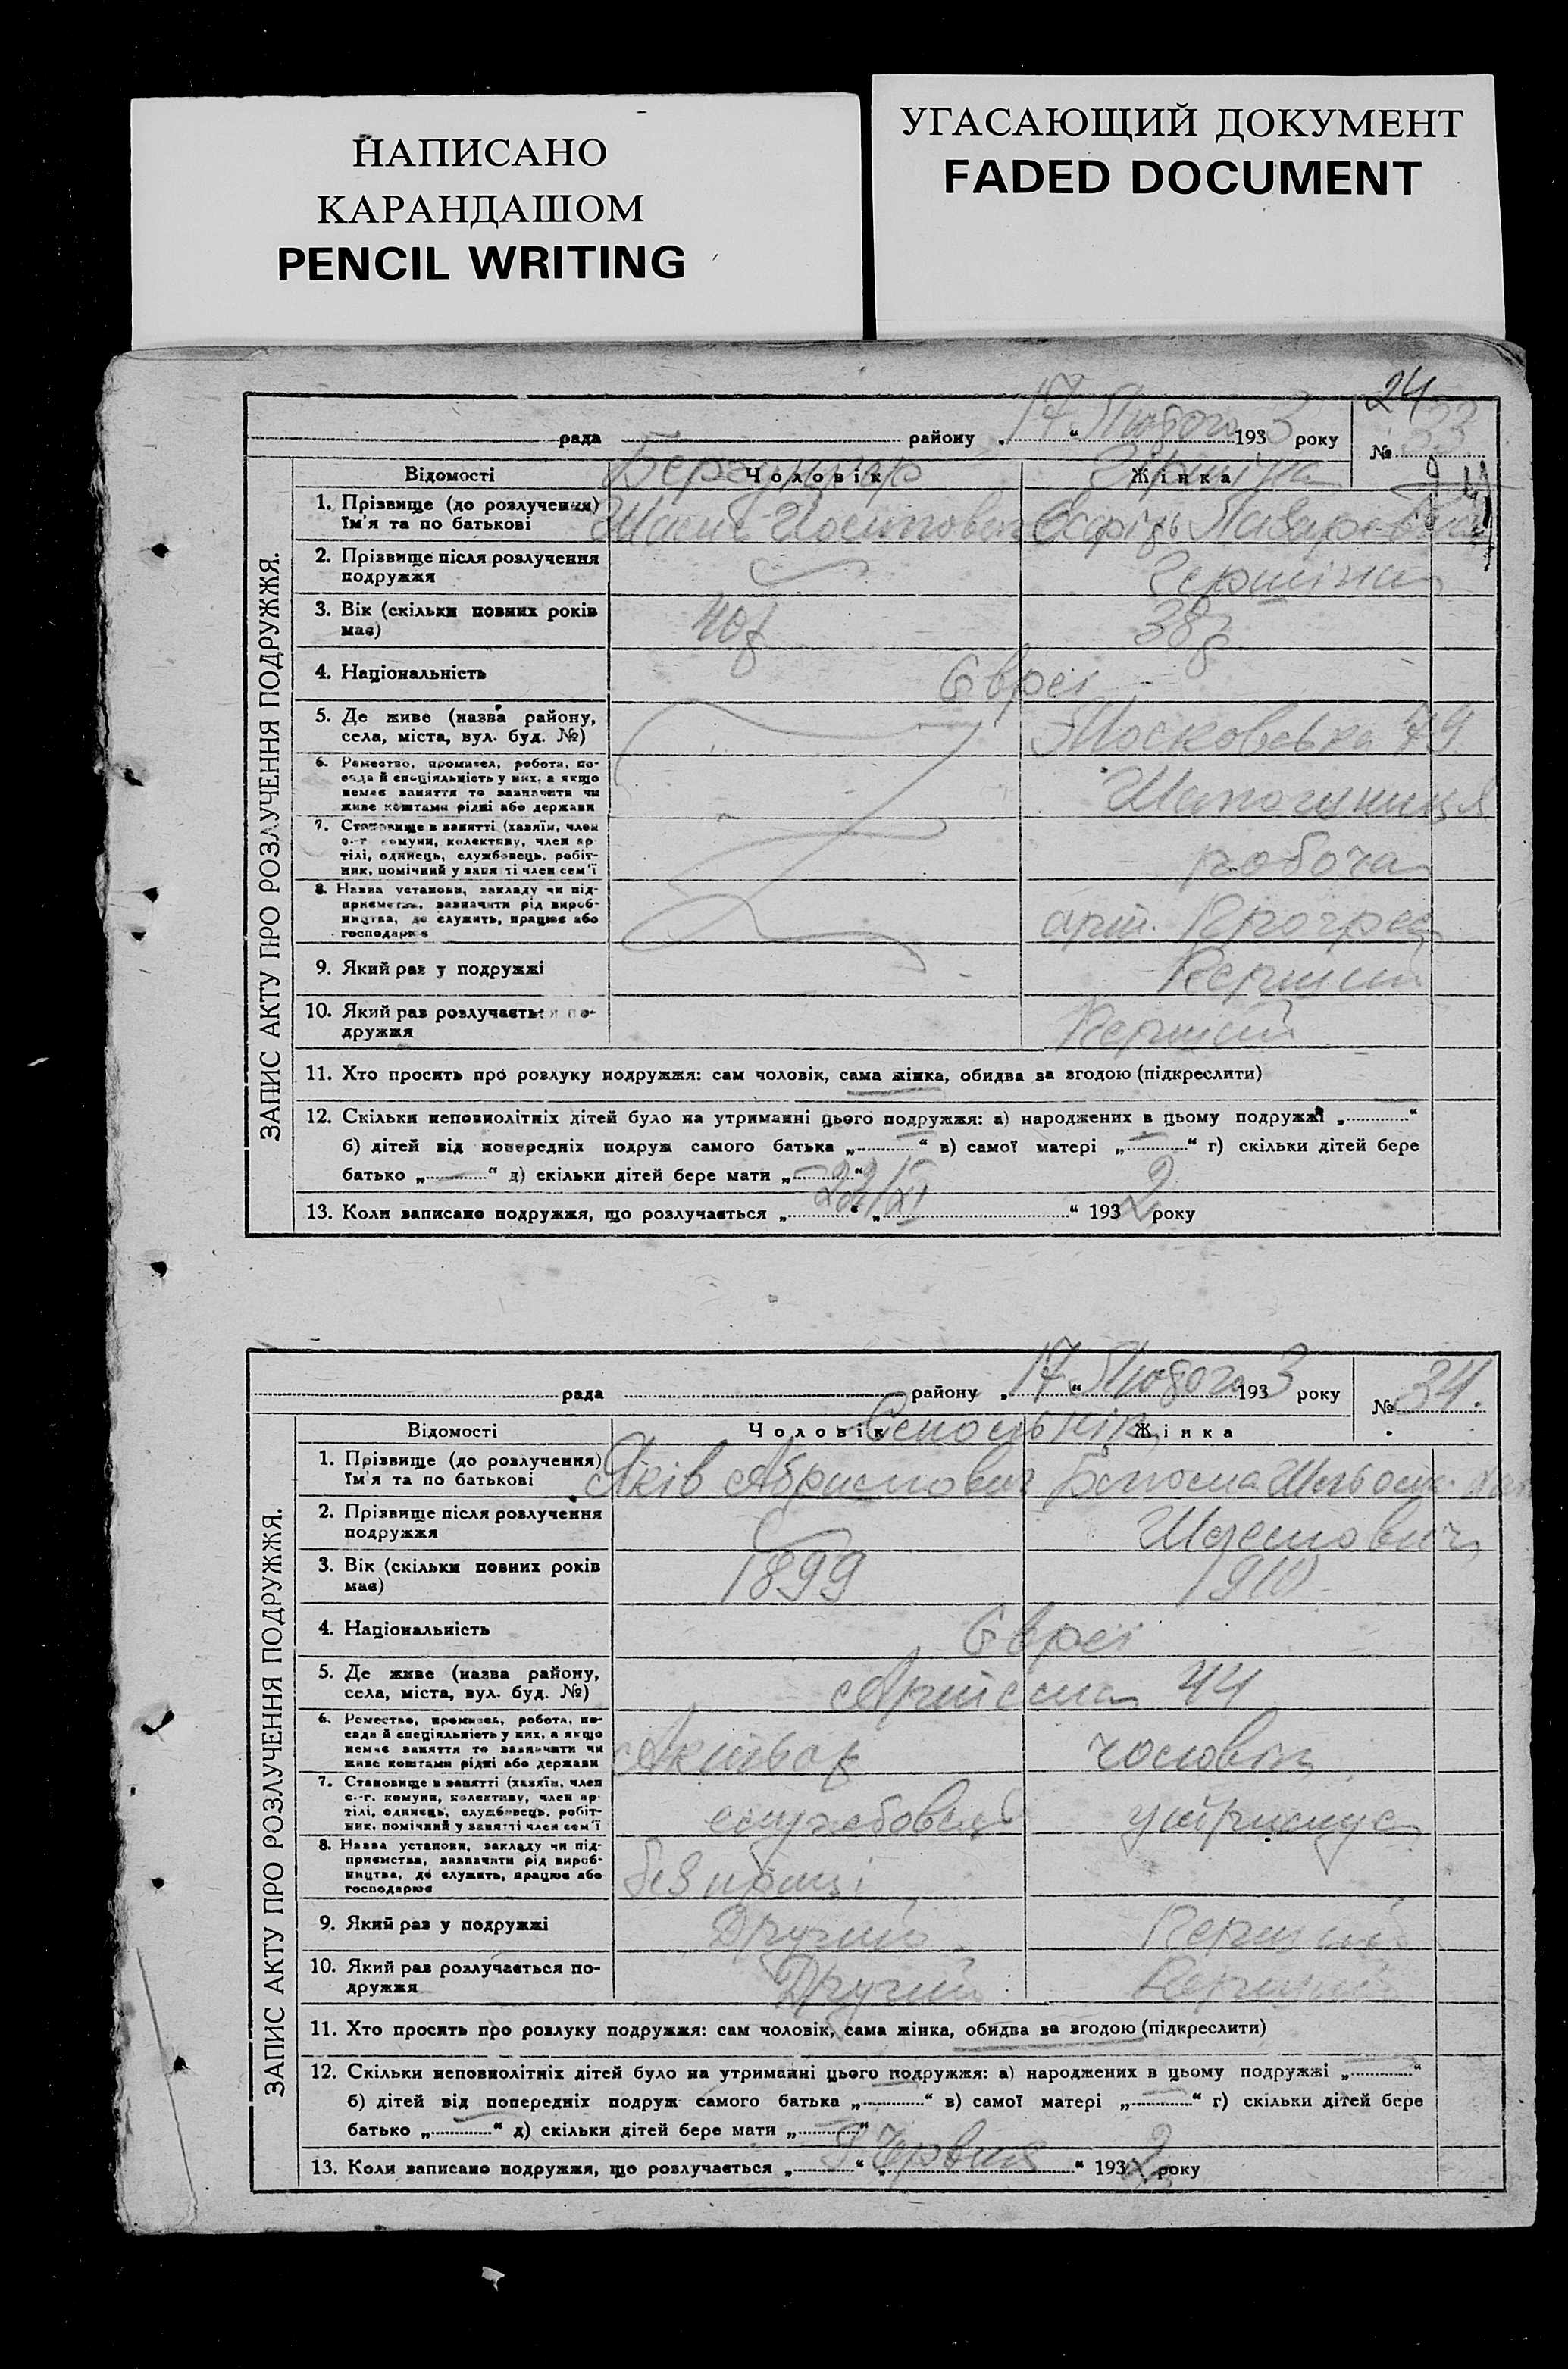 НАПИСАНО
КАРАНДАШОМ
PENCIL WRITING
УГАСАЮЩИЙ ДОКУМЕНТ
FADED DOCUMENT
24
рада району „ 17 “ Лютого 193 3 року № 33
ЗАПИС АКТУ ПРО РОЗЛУЧЕННЯ ПОДРУЖЖЯ.
Відомості Чоловік Жінка
1. Прізвище (до розлучення)
Ім'я та по батькові
2. Прізвище після розлучення
подружжя
3. Вік (скільки повних років 40 38
має)
4. Національність Євреї
5. Де живе (назва району, Московська 79
села, міста, вул. буд. №)
6. Ремество, промисел, робота, по-
сада й спеціяльність у них, а якщо
немає заняття то зазначити чи
живе коштами рідні або держави
7. Становище в занятті (хазяїн, член
с.-г. комуни, колективу, член ар-
тілі, одинець, службовець, робіт- робоча
ник, помічний у занятті член сем'ї
8. Назва установи, закладу чи під-
приємства, зазначити рід вироб- арт. Прогрес
ництва, де служить, працює або
господарює
9. Який раз у подружжі Перший
10. Який раз розлучається по- Перший
дружжя
11. Хто просить про розлуку подружжя: сам чоловік, сама жінка, обидва за згодою (підкреслити)
12. Скільки неповнолітніх дітей було на утриманні цього подружжя: а) народжених в цьому подружжі „ “
б) дітей від попередніх подруж самого батька „ “ в) самої матері „ “ г) скільки дітей бере
батько „ — “ д) скільки дітей бере мати „ — “
13. Коли записано подружжя, що розлучається „ 22/XI “ „ “ 193 2 року
рада району „ 17 “ Лютого 193 3 року № 34.
ЗАПИС АКТУ ПРО РОЗЛУЧЕННЯ ПОДРУЖЖЯ.
Відомості Чоловік Жінка
1. Прізвище (до розлучення)
Ім'я та по батькові Яків Абрамович
2. Прізвище після розлучення
подружжя
3. Вік (скільки повних років 1899 1910
має)
4. Національність Євреї
5. Де живе (назва району, Артема 44
села, міста, вул. буд. №)
6. Ремество, промисел, робота, по-
сада й спеціяльність у них, а якщо
немає заняття то зазначити чи чоловік
живе коштами рідні або держави
7. Становище в занятті (хазяїн, член
с.-г. комуни, колективу, член ар-
тілі, одинець, службовець, робіт- службовець утримує
ник, помічний у занятті член сем'ї
8. Назва установи, закладу чи під-
приємства, зазначити рід вироб-
ництва, де служить, працює або без праці
господарює
9. Який раз у подружжі Другий Перший
10. Який раз розлучається по- Другий Перший
дружжя
11. Хто просить про розлуку подружжя: сам чоловік, сама жінка, обидва за згодою (підкреслити)
12. Скільки неповнолітніх дітей було на утриманні цього подружжя: а) народжених в цьому подружжі „ “
б) дітей від попередніх подруж самого батька „ “ в) самої матері „ “ г) скільки дітей бере
батько „ “ д) скільки дітей бере мати „ “
13. Коли записано подружжя, що розлучається „ “ „ Червня “ 193 2 року